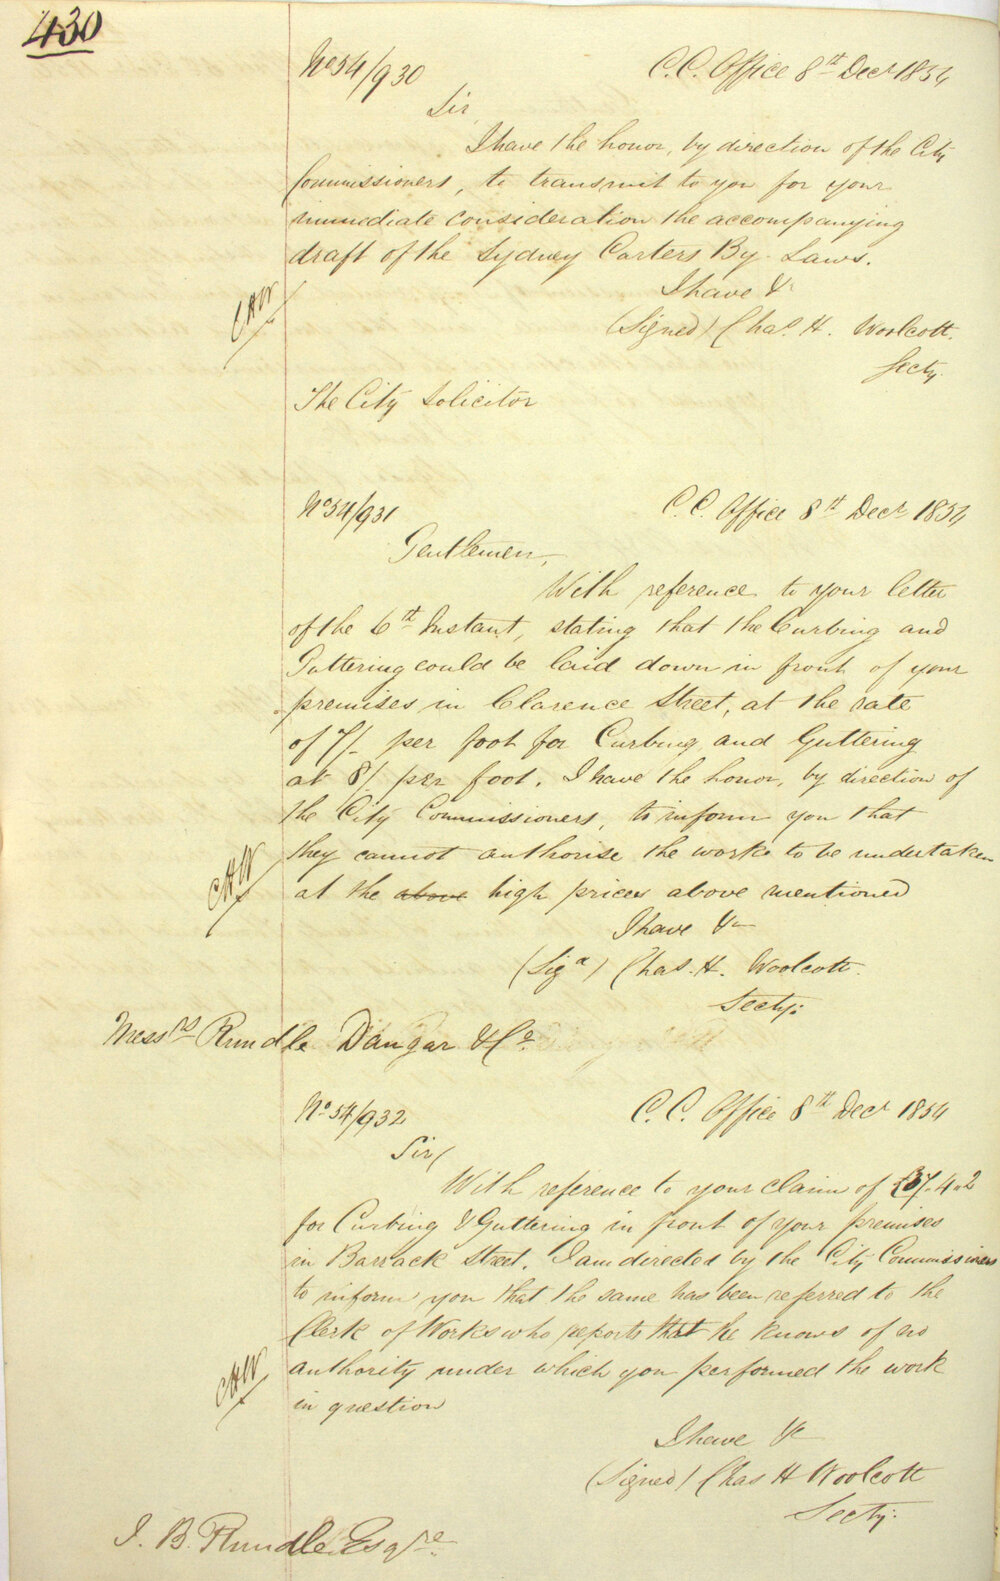 430
No 54/930 C.C. Office 8th Decr 1854
Sir
I have the honor, by direction of the City
Commissioners, to transmit to you for your
immediate consideration the accompanying
draft of the Sydney Carters By-Laws.
I have &c
CHW
(Signed) Chas. H. Woolcott.
Secty.
The City Solicitor
No 54/931 C.C. Office 8th Decr 1854
Gentlemen,
With reference to your letter
of the 6th Instant, stating that the Curbing and
Guttering could be laid down in front of your
premises in Clarence Street, at the rate
of 7/- per foot for Curbing and Guttering
at 8/ per foot. I have the honor, by direction of
the City Commissioners, to inform you that
they cannot authorise the works to be undertaken
CHW
at the above high prices above mentioned
I have &c
(Sigd) Chas. H. Woolcott.
Secty:
Messrs Rundle Dangar & Co.
No 54/932 C.C. Office 8th Decr 1854
Sir,
With reference to your claim of £37.4.2
for Curbing & Guttering in front of your premises
in Barrack Street. I am directed by the City Commissioners
to inform you that the same has been referred to the
Clerk of Works who reports that he knows of no
authority under which you performed the work
CHW
in question
I have &c
(Signed) Chas H Woolcott
Secty.
J. B. Rundle Esqre.